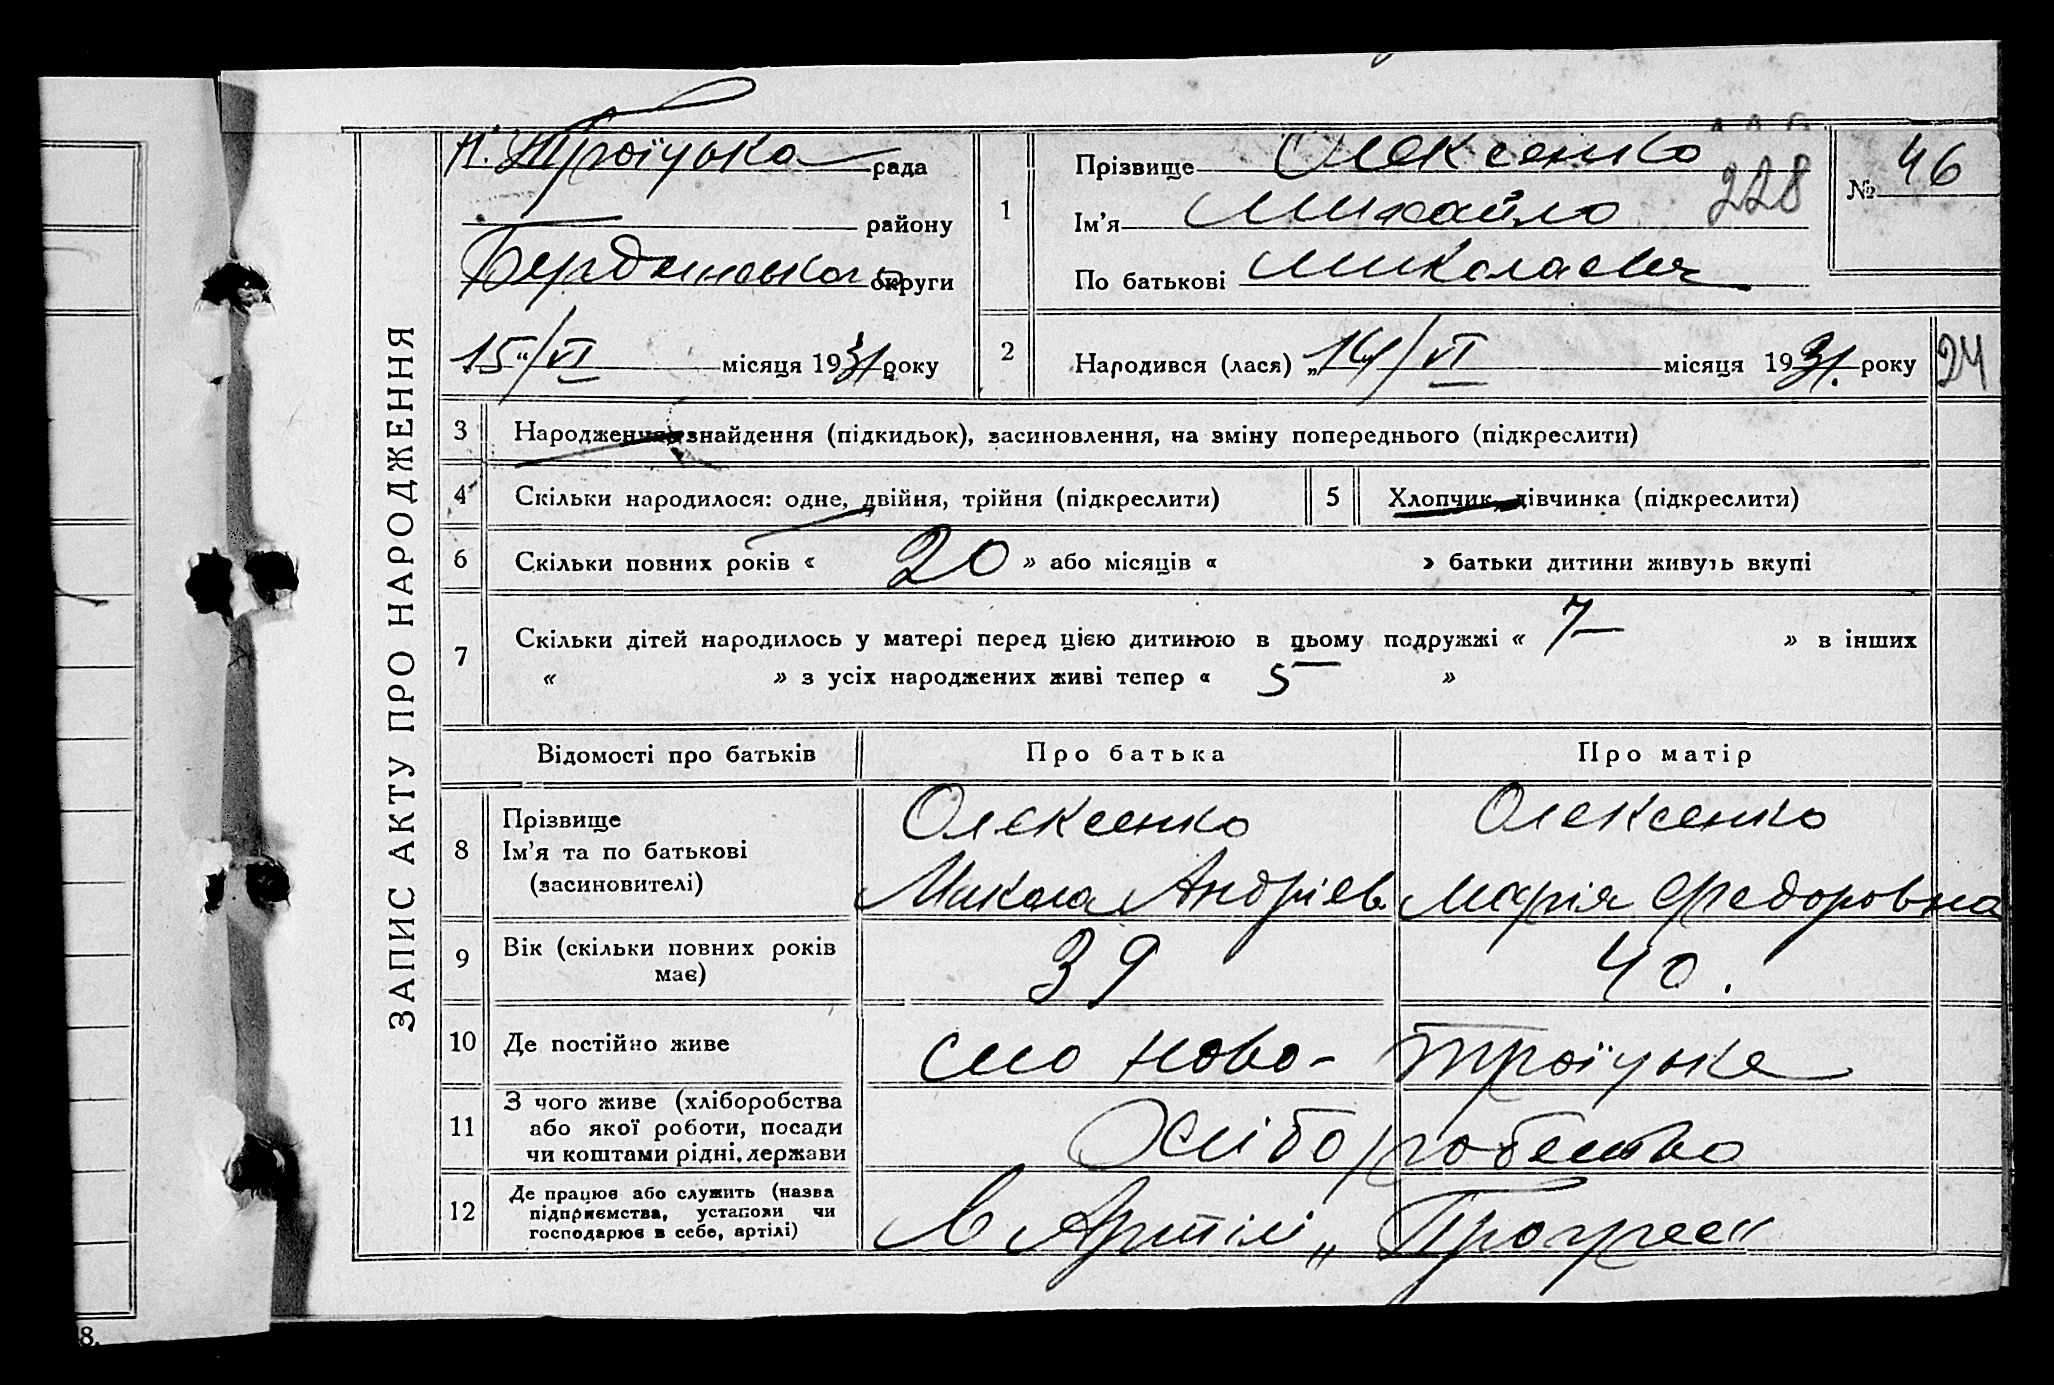 ЗАПИС АКТУ ПРО НАРОДЖЕННЯ
Н. Троїцька рада
району
Бердянського округи
15"/VI місяця 1931 року
1
Прізвище Олексенко
Ім'я Михайло 228
По батькові Миколаевич
№ 46
2
Народився (лася) „14/VI місяця 1931. року
24
3 Народження, знайдення (підкидьок), засиновлення, на зміну попереднього (підкреслити)
4 Скільки народилося: одне, двійня, трійня (підкреслити)
5 Хлопчик, дівчинка (підкреслити)
6 Скільки повних років « 20 » або місяців « » батьки дитини живуть вкупі
7 Скільки дітей народилось у матері перед цією дитиною в цьому подружжі « 7 » в інших
« » з усіх народжених живі тепер « 5 »
Відомості про батьків Про батька Про матір
8
Прізвище
Ім'я та по батькові
(засиновителі)
Олексенко
Микола Андріев.
Олексенко
Марія Федоровна
9
Вік (скільки повних років
має)
39
40.
10 Де постійно живе
село Ново-Троїцьке
11
З чого живе (хліборобства
або якої роботи, посади
чи коштами рідні, держави
Хліборобство
12
Де працює або служить (назва
підприємства, установи чи
господарює в себе, артілі)
в Артілі „Прогрес"
8.